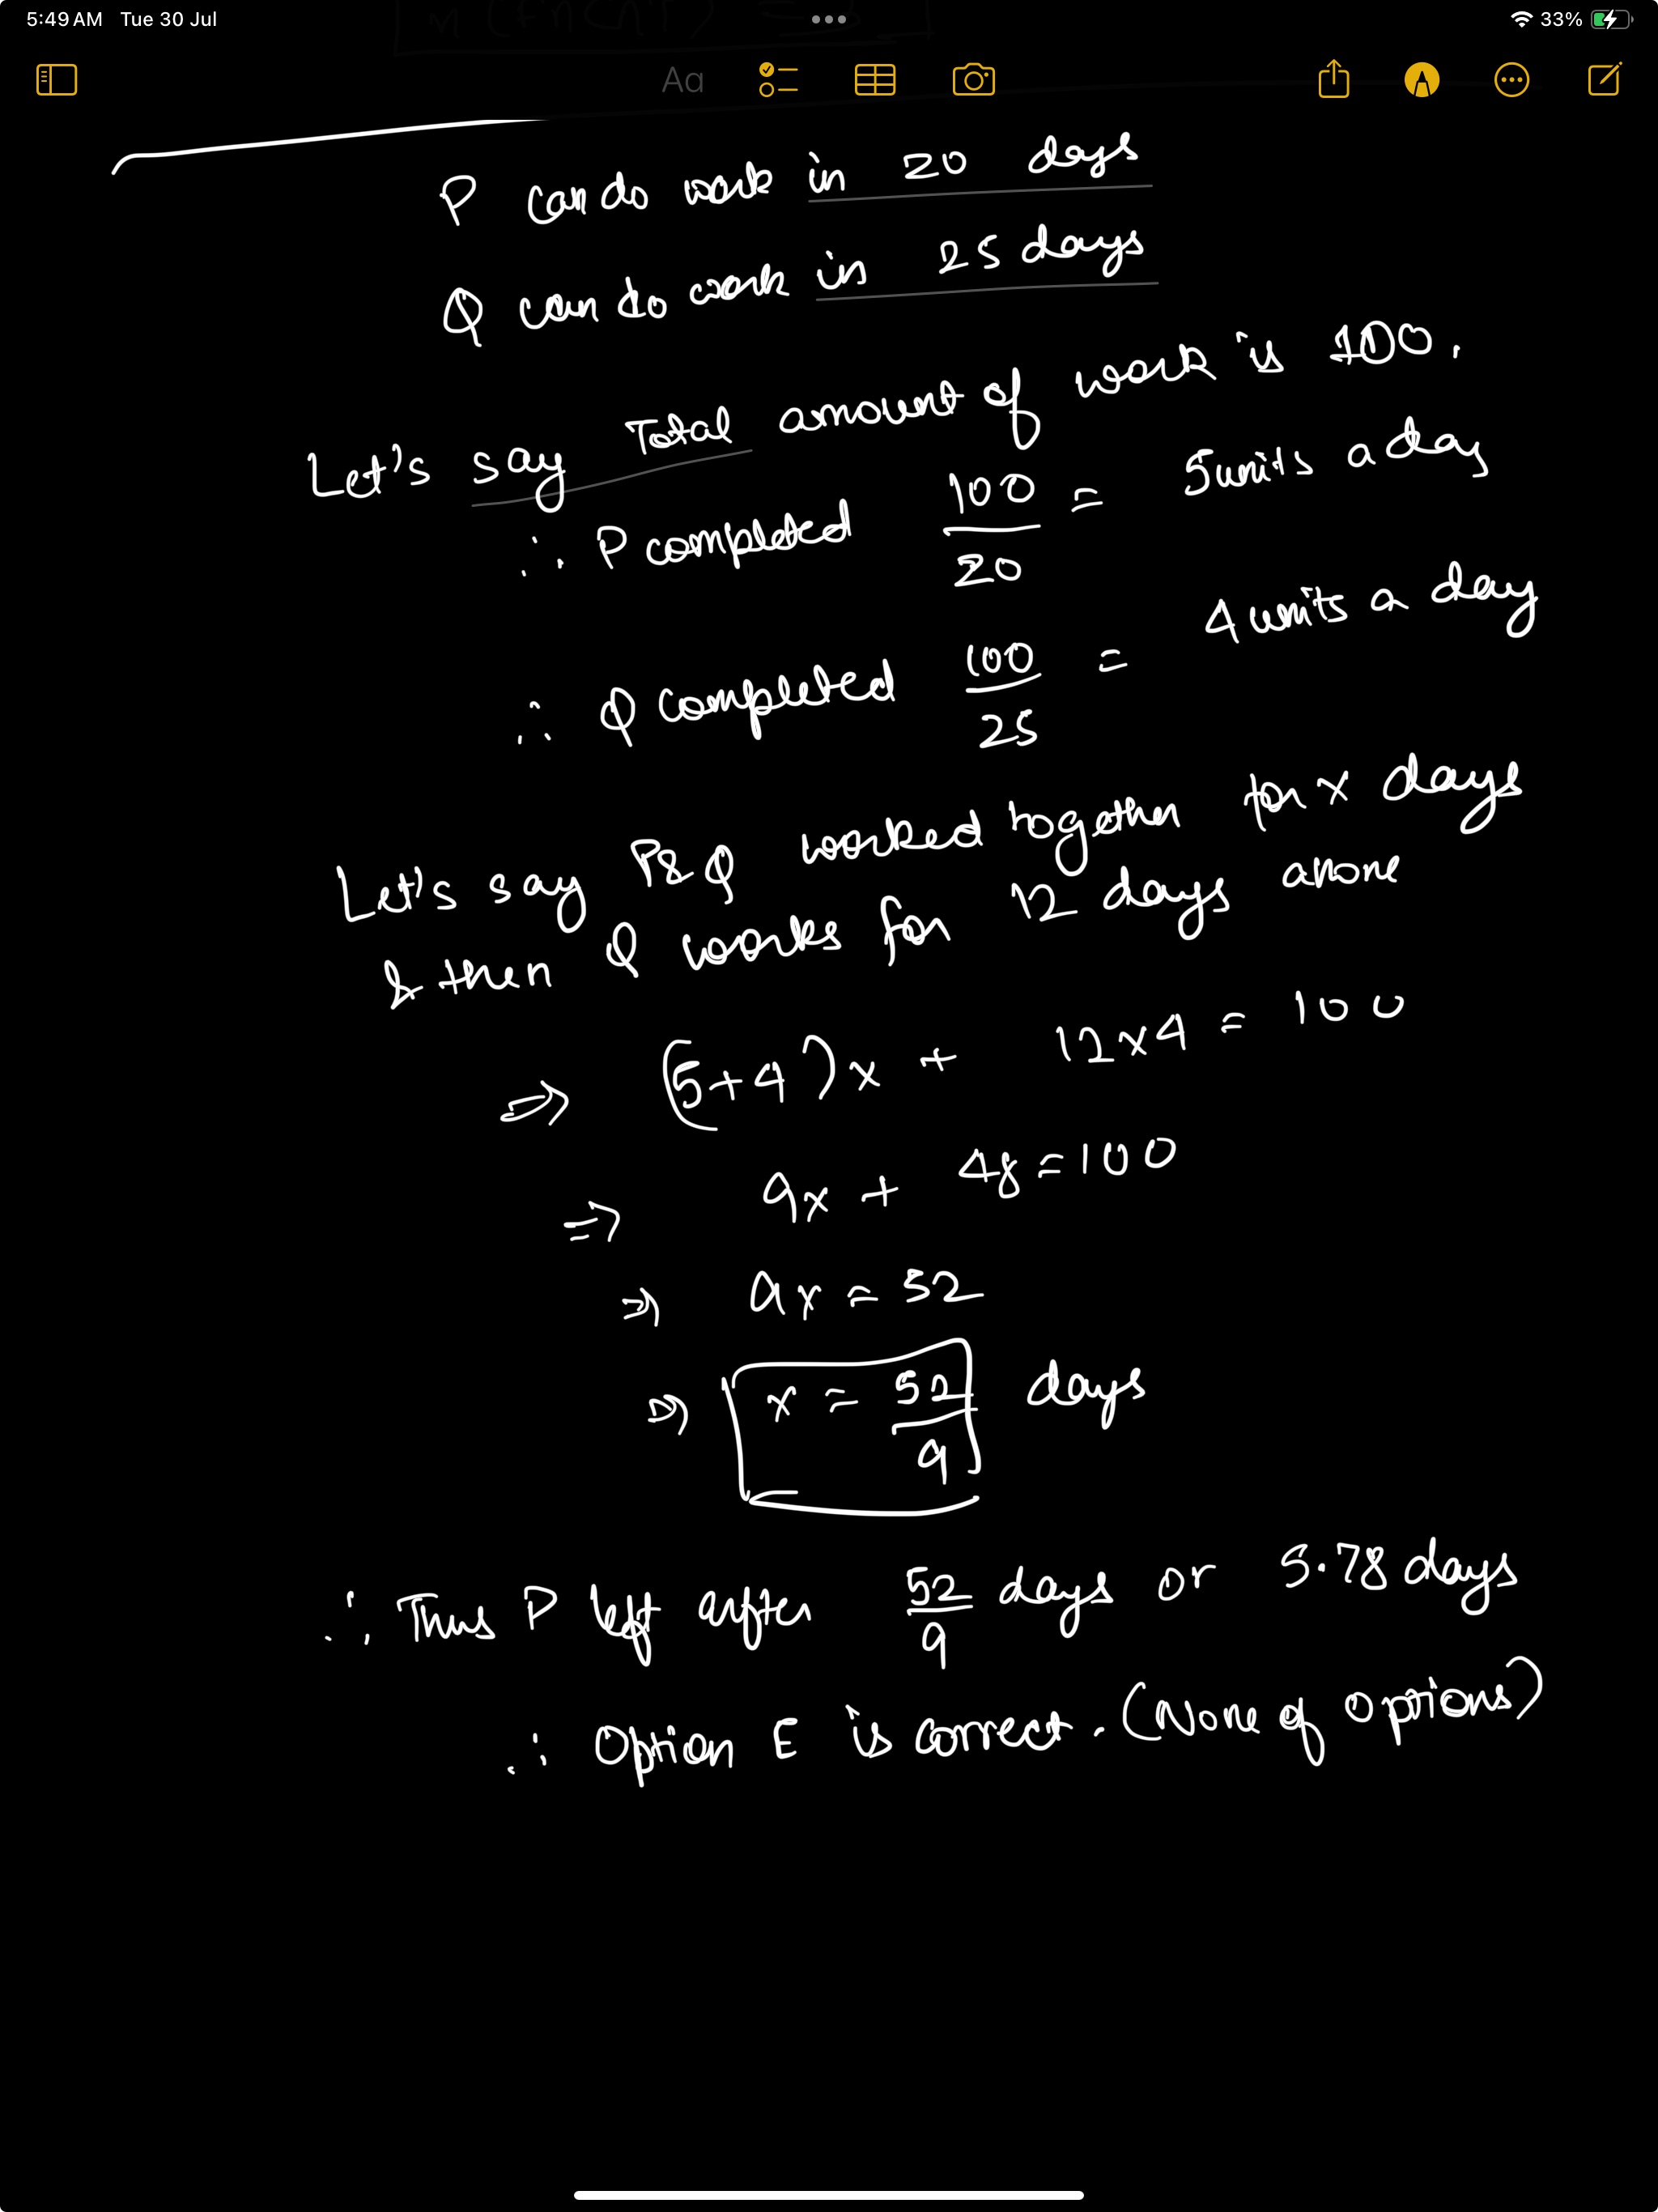 5:49 AM Tue 30 Jul
33%
Aa
P can do work in 20 days
Q can do work in 25 days
Let's say Total amount of work is 100.
∴ P completed 100/20 = 5 units a day
∴ Q completed 100/25 = 4 units a day
Let's say P & Q worked together for x days
& then Q works for 12 days alone
⇒ (5+4)x + 12×4 = 100
⇒ 9x + 48 = 100
⇒ 9x = 52
⇒ x = 52/9 days
∴ Thus P left after 52/9 days or 5.78 days
∴ Option E is correct. (None of options)